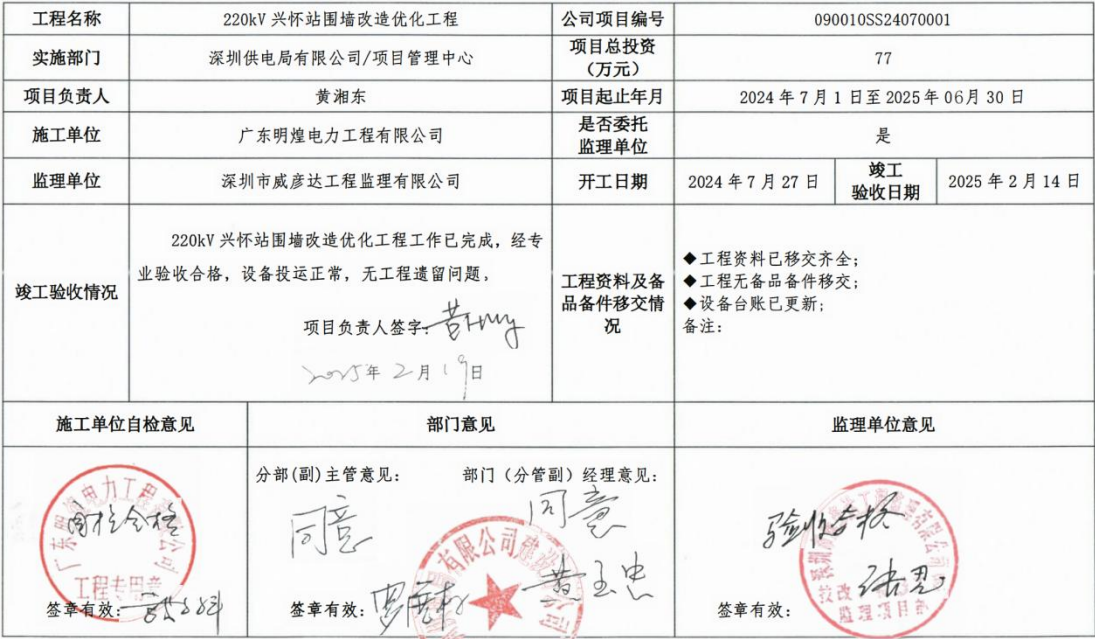 工程名称 220kV 兴怀站围墙改造优化工程 公司项目编号 090010SS24070001
实施部门 深圳供电局有限公司/项目管理中心 项目总投资
（万元） 77
项目负责人 黄湘东 项目起止年月 2024 年 7 月 1 日至 2025 年 06月 30 日
施工单位 广东明煌电力工程有限公司 是否委托
监理单位 是
监理单位 深圳市威彦达工程监理有限公司 开工日期 2024 年 7 月 27 日 竣工
验收日期 2025 年 2 月 14 日
竣工验收情况
220kV 兴怀站围墙改造优化工程工作已完成，经专
业验收合格，设备投运正常，无工程遗留问题，
项目负责人签字：
2025年 2月 19日
工程资料及备
品备件移交情
况
◆工程资料已移交齐全；
◆工程无备品备件移交；
◆设备台账已更新；
备注：
施工单位自检意见 部门意见 监理单位意见
自检合格
工程专用章
签章有效：
分部(副)主管意见： 部门（分管副）经理意见：
同意 同意
有限公司建设
黄玉忠
签章有效：
验收合格
监理项目部
签章有效：